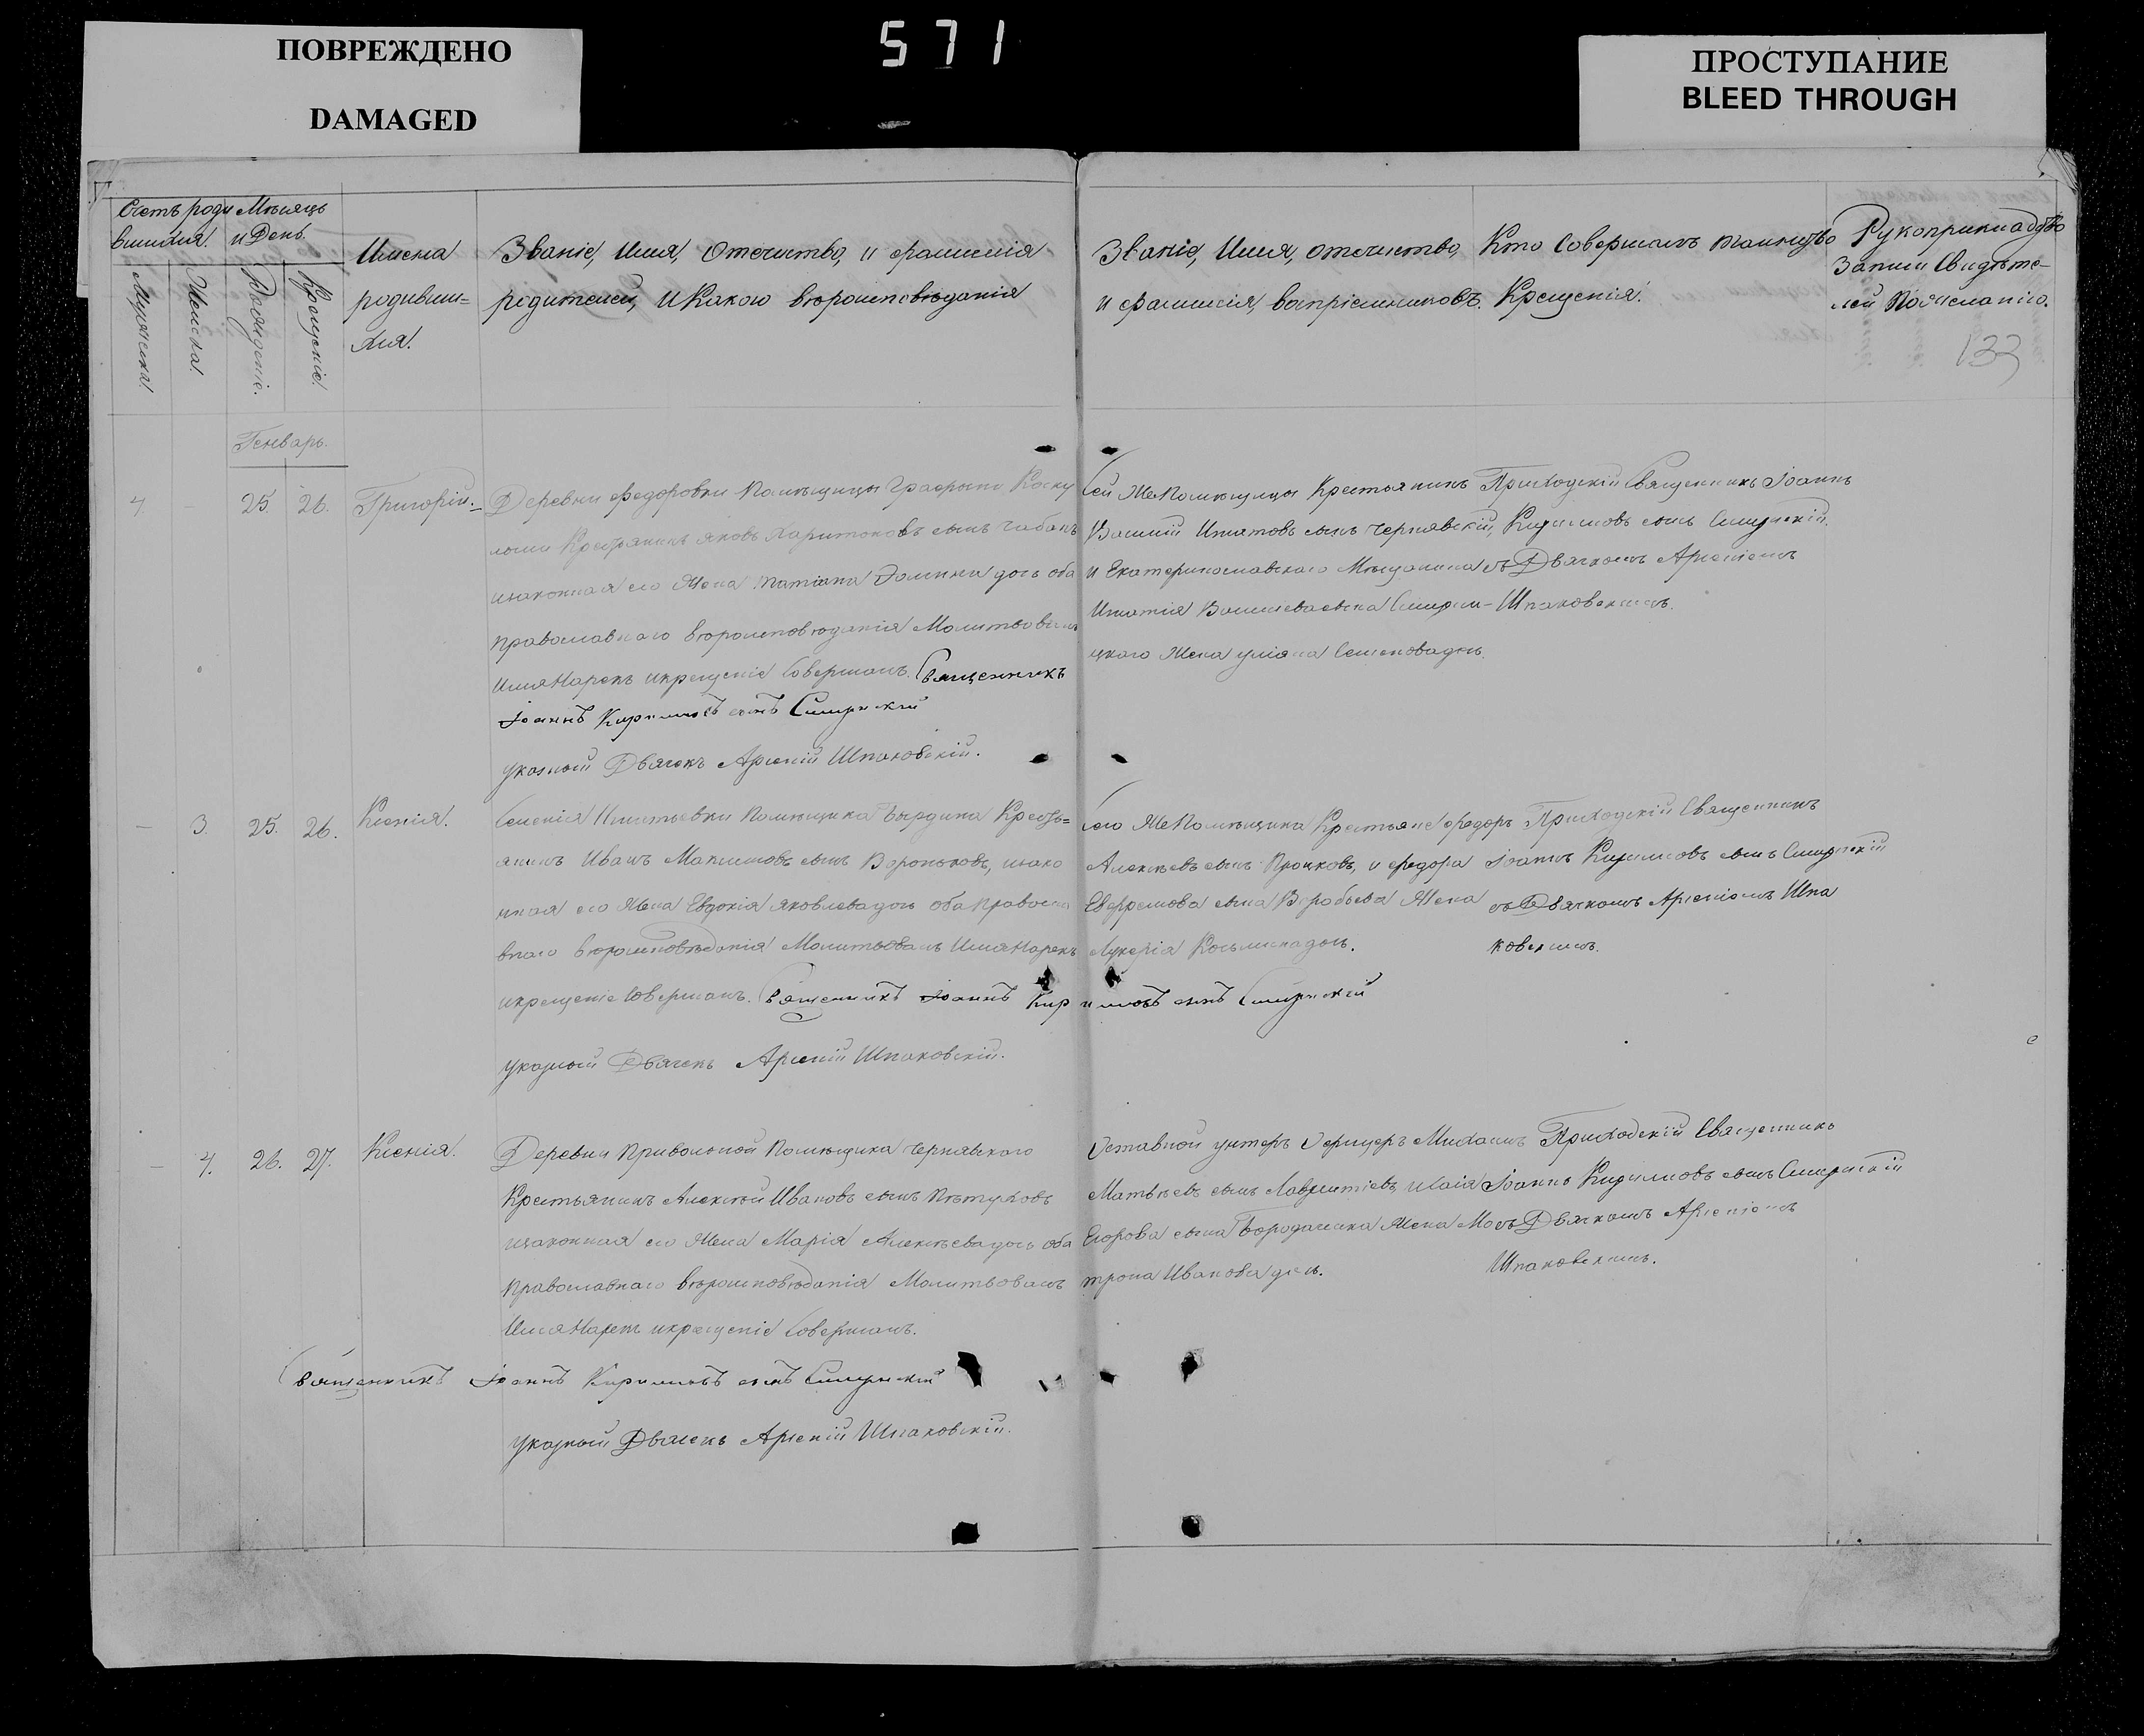 ПОВРЕЖДЕНО
DAMAGED
571
ПРОСТУПАНИЕ
BLEED THROUGH
Счетъ роди
вшихся.
Мѣсяцъ
и День.
Мужеска
Женска.
Рожденіе.
Крещеніе.
Имена
родивши=
хся.
Званіе, Имя, Отечество, и фамилія
родителей, и Какого вѣроисповѣданія
Званіе, Имя, отечество,
и фамилія, воспріемниковъ.
Кто Совершалъ таинство
Крещенія.
Рукоприкладство
Записи Свидѣте-
лей По желанію.
133
Генварь.
4. - 25. 26. Григорій.
Деревни Федоровки Помѣщицы Графыни
Крестьянинъ Яковъ Харитоновъ сынъ
изаконная его Жена Татіана дочь оба
православнаго вѣроисповѣданія Молитвовалъ
Имя Нарекъ икрещеніе Совершалъ. Священникъ
Іоаннъ Кириловъ сынъ Смирнскій
указный Дьячекъ Арсеній Шпаковскій.
Сей Же Помѣщицы Крестьянинъ
Василій Игнатовъ сынъ Чернявскій,
и Екатеринославскаго Мѣщанина
Игнатія сына
цкаго Жена уліяна Семенова дочь.
Приходскій Священникъ Іоаннъ
Кириловъ сынъ Смирнскій
съ Дьячкомъ Арсеніемъ
Шпаковскимъ.
- 3. 25. 26. Ксенія.
Селенія Игнатьевки Помѣщика Кресть=
янинъ Иванъ Максимовъ сынъ Вороньковъ, изако
нная его Жена Евдокія Яковлева дочь оба правосла
внаго вѣроисповѣданія Молитвовалъ Имя Нарекъ
икрещеніе Совершалъ. Священникъ Іоаннъ Кириловъ сынъ Смирнскій
указный Дьячекъ Арсеній Шпаковскій.
Сего Же Помѣщика Крестьяне Федоръ
Алексѣевъ сынъ и Федора
Ефремова сына Воробьева Жена
Лукерія Косьмина дочь.
Приходскій Священникъ
Іоаннъ Кириловъ сынъ Смирнскій
съ Дьячкомъ Арсеніемъ Шпа
ковскимъ.
- 4. 26. 27. Ксенія.
Деревни Привольной Помѣщика Чернявскаго
Крестьянинъ Алексѣй Ивановъ сынъ Пѣтуховъ
изаконная его Жена Марія Алексѣева дочь оба
Православнаго вѣроисповѣданія Молитвовалъ
Имя Нарекъ икрещеніе Совершалъ.
Священникъ Іоаннъ Кириловъ сынъ Смирнскій
указный Дьячекъ Арсеній Шпаковскій.
Отставной унтеръ Офицеръ Михаилъ
Матвѣевъ сынъ Лаврентіевъ,
Егорова сына Жена Ма
трона Иванова дочь.
Приходскій Священникъ
Іоаннъ Кириловъ сынъ Смирнскій
съ Дьячкомъ Арсеніемъ
Шпаковскимъ.